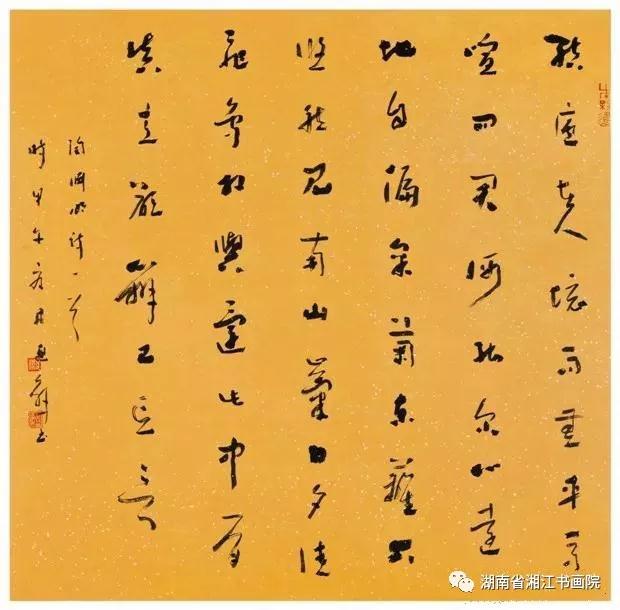 结庐在人境而無车马
喧问君何能尔心远
地自偏采菊东篱下
悠然见南山氣日夕佳
飞鸟相與還此中有
真意欲辨已忘言
陶渊明诗一首
時甲午
湖南省湘江书画院